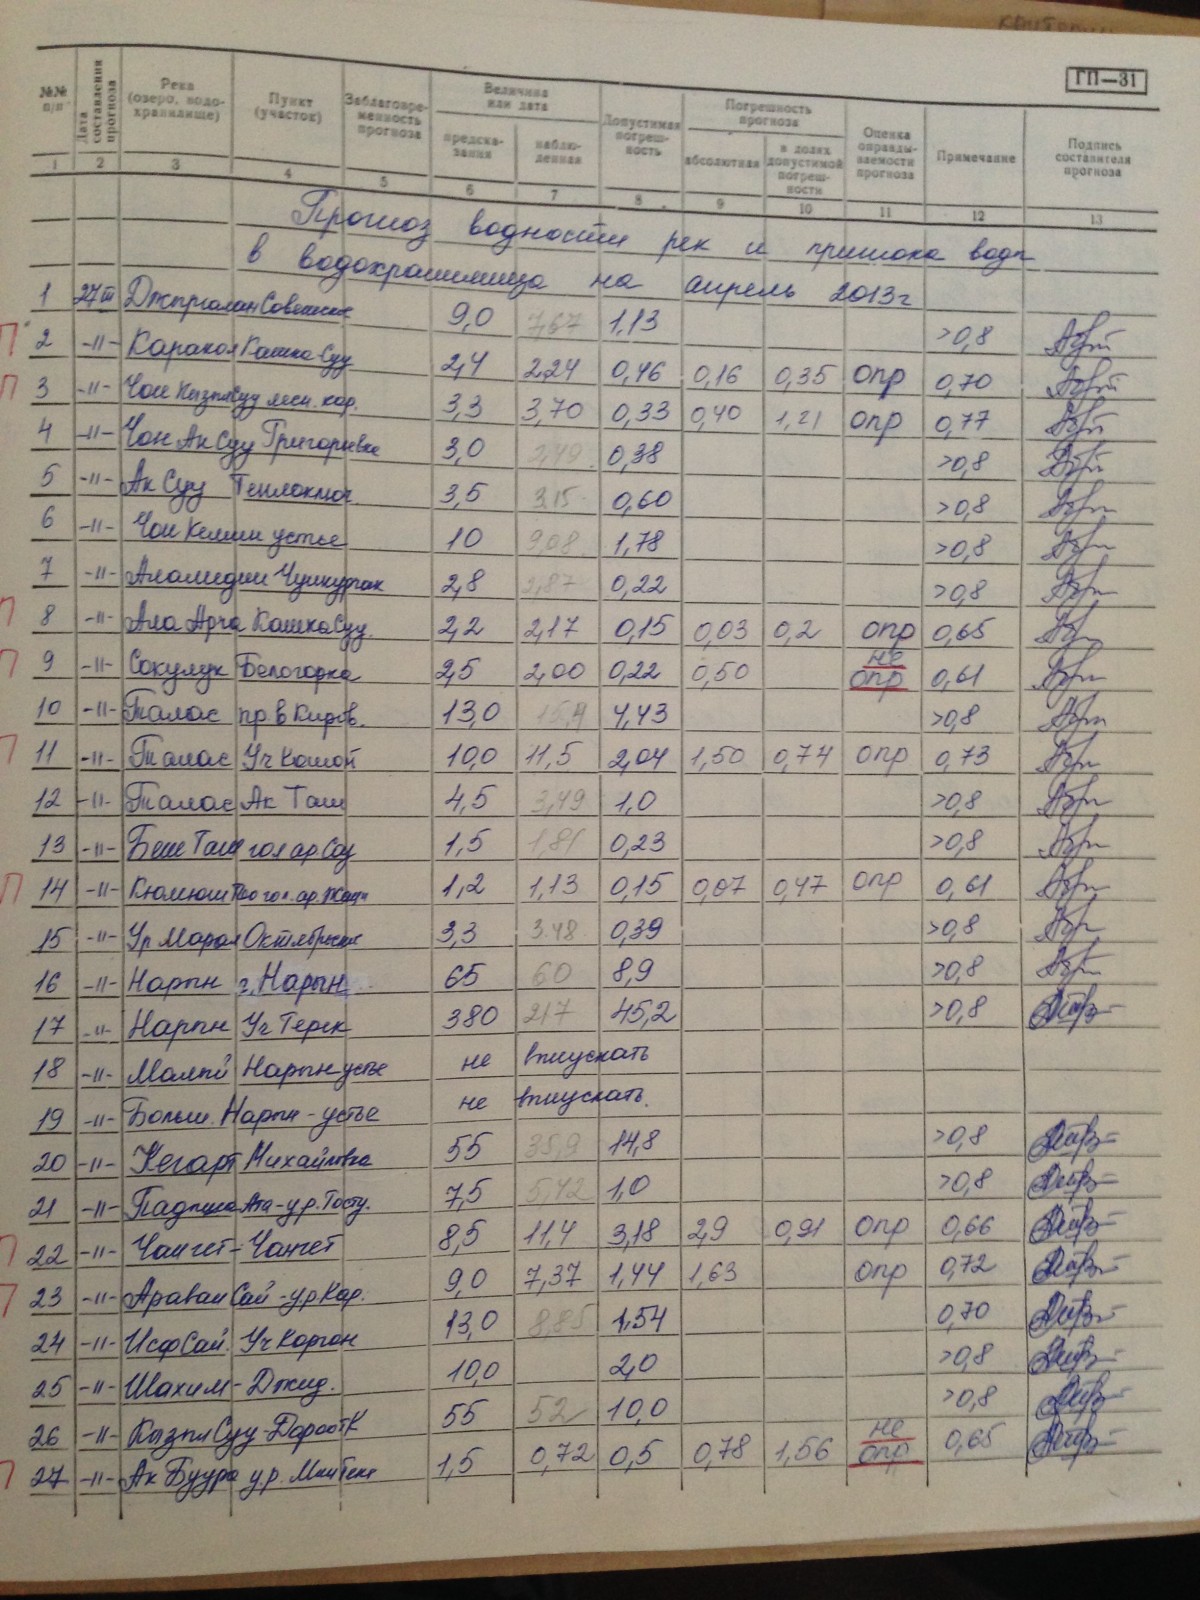 ГП—31
№№ п/п | Дата составления прогноза | Река (озеро, водохранилище) | Пункт (участок) | Заблаговременность прогноза | Величина или дата | предсказания | наблюденная | Допустимая погрешность | Погрешность прогноза | абсолютная | в долях допустимой погрешности | Оценка оправдываемости прогноза | Примечание | Подпись составителя прогноза
1 2 3 4 5 6 7 8 9 10 11 12 13
Прогноз водности рек и притока воды
в водохранилища на апрель 2013г
1 27 III Джпргалан Советское 9,0 7,67 1,13 >0,8
П 2 -11- Каракол Кашка-Суу 2,4 2,24 0,46 0,16 0,35 опр 0,70
П 3 -11- Чон КызплСуу лесн. кор. 3,3 3,70 0,33 0,40 1,21 опр 0,77
4 -11- Чон Ак Суу Григорьевка 3,0 2,49 0,38 >0,8
5 -11- Ак Суу Теплоключ 3,5 3.15 0,60 >0,8
6 -11- Чон Кемин устье 10 9,08 1,78 >0,8
7 -11- Аламедин Чункурчак 2,8 2,87 0,22 >0,8
П 8 -11- Ала Арча КашкаСуу. 2,2 2,17 0,15 0,03 0,2 опр 0,65
П 9 -11- Сокулук Белогорка 2,5 2,00 0,22 0,50 не опр 0,61
10 -11- Талас пр в Киров. 13,0 15,4 4,43 >0,8
П 11 -11- Талас Уч Кошой 10,0 11,5 2,04 1,50 0,74 опр 0,73
12 -11- Талас Ак Таш 4,5 3,49 1,0 >0,8
13 -11- Беш Таш гол ар Соу 1,5 1,81 0,23 >0,8
П 14 -11- Кюмюш Тло гол. ар. 1,2 1,13 0,15 0,07 0,47 опр 0,61
15 -11- Ур Марал Октябрьское 3,3 3.48 0,39 >0,8
16 -11- Нарын г. Нарын 65 60 8,9 >0,8
17 -11- Нарпн Уч Терек 380 217 45,2 >0,8
18 -11- Малпй Нарпн устье не впускать
19 -11- Больш. Нарпн - устье не впускать.
20 -11- Кегарт Михайловка 55 35,9 14,8 >0,8
21 -11- Падпша Ата - ур. Тосту. 7,5 5,42 1,0 >0,8
П 22 -11- Чангет - Чангет 8,5 11,4 3,18 2,9 0,91 опр 0,66
П 23 -11- Араван Сай - ур Кар. 9,0 7,37 1,44 1,63 опр 0,72
24 -11- ИсфСай. Уч Коргон 13,0 8,85 1,54 0,70
25 -11- Шахим - Джид. 10,0 2,0 >0,8
26 -11- Кызпл Суу - Дароот К 55 52 10,0 >0,8
П 27 -11- Ак Буура ур. 1,5 0,72 0,5 0,78 1,56 не опр 0,65